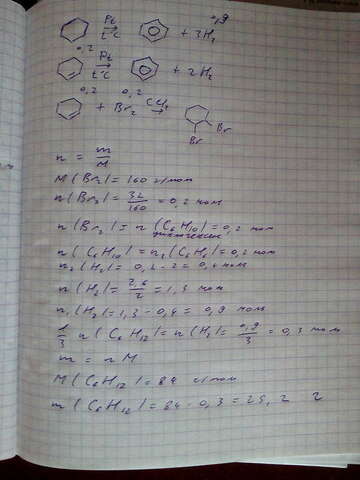 0,9
Pt
t°C + 3H₂
0,2 Pt
t°C + 2H₂
0,2 0,2
+ Br₂ CCl₄ Br
Br
n = m/M
M(Br₂) = 160 г/моль
n(Br₂) = 32/160 = 0,2 моль
n(Br₂) = n(C₆H₁₀) = 0,2 моль
циклогексен
n(C₆H₁₀) = n₂(C₆H₆) = 0,2 моль
n₂(H₂) = 0,2 · 2 = 0,4 моль
n(H₂) = 2,6/2 = 1,3 моль
n₁(H₂) = 1,3 - 0,4 = 0,9 моль
1/3 n(C₆H₁₂) = n(H₂) = 0,9/3 = 0,3 моль
m = nM
M(C₆H₁₂) = 84 г/моль
m(C₆H₁₂) = 84 · 0,3 = 25,2 г